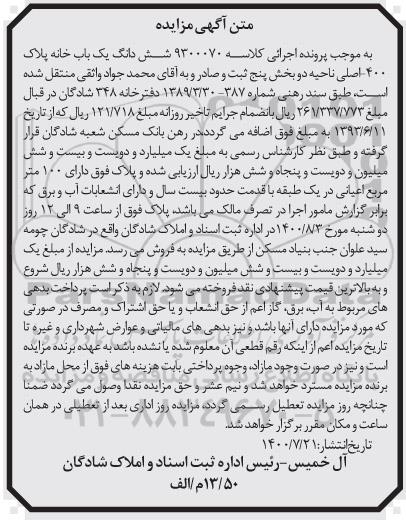 متن آگهی مزایده
به موجب پرونده اجرائی کلاسه ۹۳۰۰۰۷۰ شش دانگ یک باب خانه پلاک
۴۰۰-اصلی ناحیه دو بخش پنج ثبت و صادر و به آقای محمد جواد واثقی منتقل شده
است، طبق سند رهنی شماره ۳۸۷-۱۳۸۹/۳/۳۰ دفترخانه ۳۴۸ شادگان در قبال
مبلغ ۲۶۱/۳۳۷/۷۷۳ ریال بانضمام جرایم تاخیر روزانه مبلغ ۱۲۱/۷۱۸ ریال که از تاریخ
۱۳۹۳/۶/۱۱ به مبلغ فوق اضافه می گردددر رهن بانک مسکن شعبه شادگان قرار
گرفته و طبق نظر کارشناس رسمی به مبلغ یک میلیارد و دویست و بیست و شش
میلیون و دویست و پنجاه و شش هزار ریال ارزیابی شده و پلاک فوق دارای ۱۰۰ متر
مربع اعیانی در یک طبقه با قدمت حدود بیست سال و دارای انشعابات آب و برق که
برابر گزارش مامور اجرا در تصرف مالک می باشد، پلاک فوق از ساعت ۹ الی ۱۲ روز
دو شنبه مورخ ۱۴۰۰/۸/۳ در اداره ثبت اسناد و املاک شادگان واقع در شادگان چومه
سید علوان جنب بنیاد مسکن از طریق مزایده به فروش می رسد. مزایده از مبلغ یک
میلیارد و دویست و بیست و شش میلیون و دویست و پنجاه و شش هزار ریال شروع
و به بالاترین قیمت پیشنهادی نقد فروخته می شود. لازم به ذکر است پرداخت بدهی
های مربوط به آب، برق، گاز اعم از حق انشعاب و یا حق اشتراک و مصرف در صورتی
که مورد مزایده دارای آنها باشد و نیز بدهی های مالیاتی و عوارض شهرداری و غیره تا
تاریخ مزایده اعم از اینکه رقم قطعی آن معلوم شده یا نشده باشد به عهده برنده مزایده
است و نیز در صورت وجود مازاد، وجوه پرداختی بابت هزینه های فوق از محل مازاد به
برنده مزایده مسترد خواهد شد و نیم عشر و حق مزایده نقدا وصول می گردد ضمنا
چنانچه روز مزایده تعطیل رسمی گردد، مزایده روز اداری بعد از تعطیلی در همان
ساعت و مکان مقرر برگزار خواهد شد.
تاریخ انتشار: ۱۴۰۰/۷/۲۱
آل خمیس-رئیس اداره ثبت اسناد و املاک شادگان
۱۳/۵۰م/الف
ParsNamadData
۰۲۱-۸۸۳۴۹۶۷۰-۵